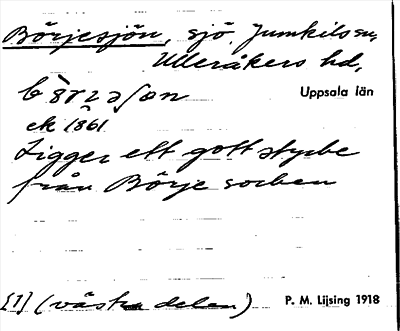 Börjesjön, sjö, Jumkils sn,
Ulleråkers hd,
Uppsala län
ek 1861
Ligger ett gott stycke
från Börje socken
[1] (västra delen) P. M. Lijsing 1918